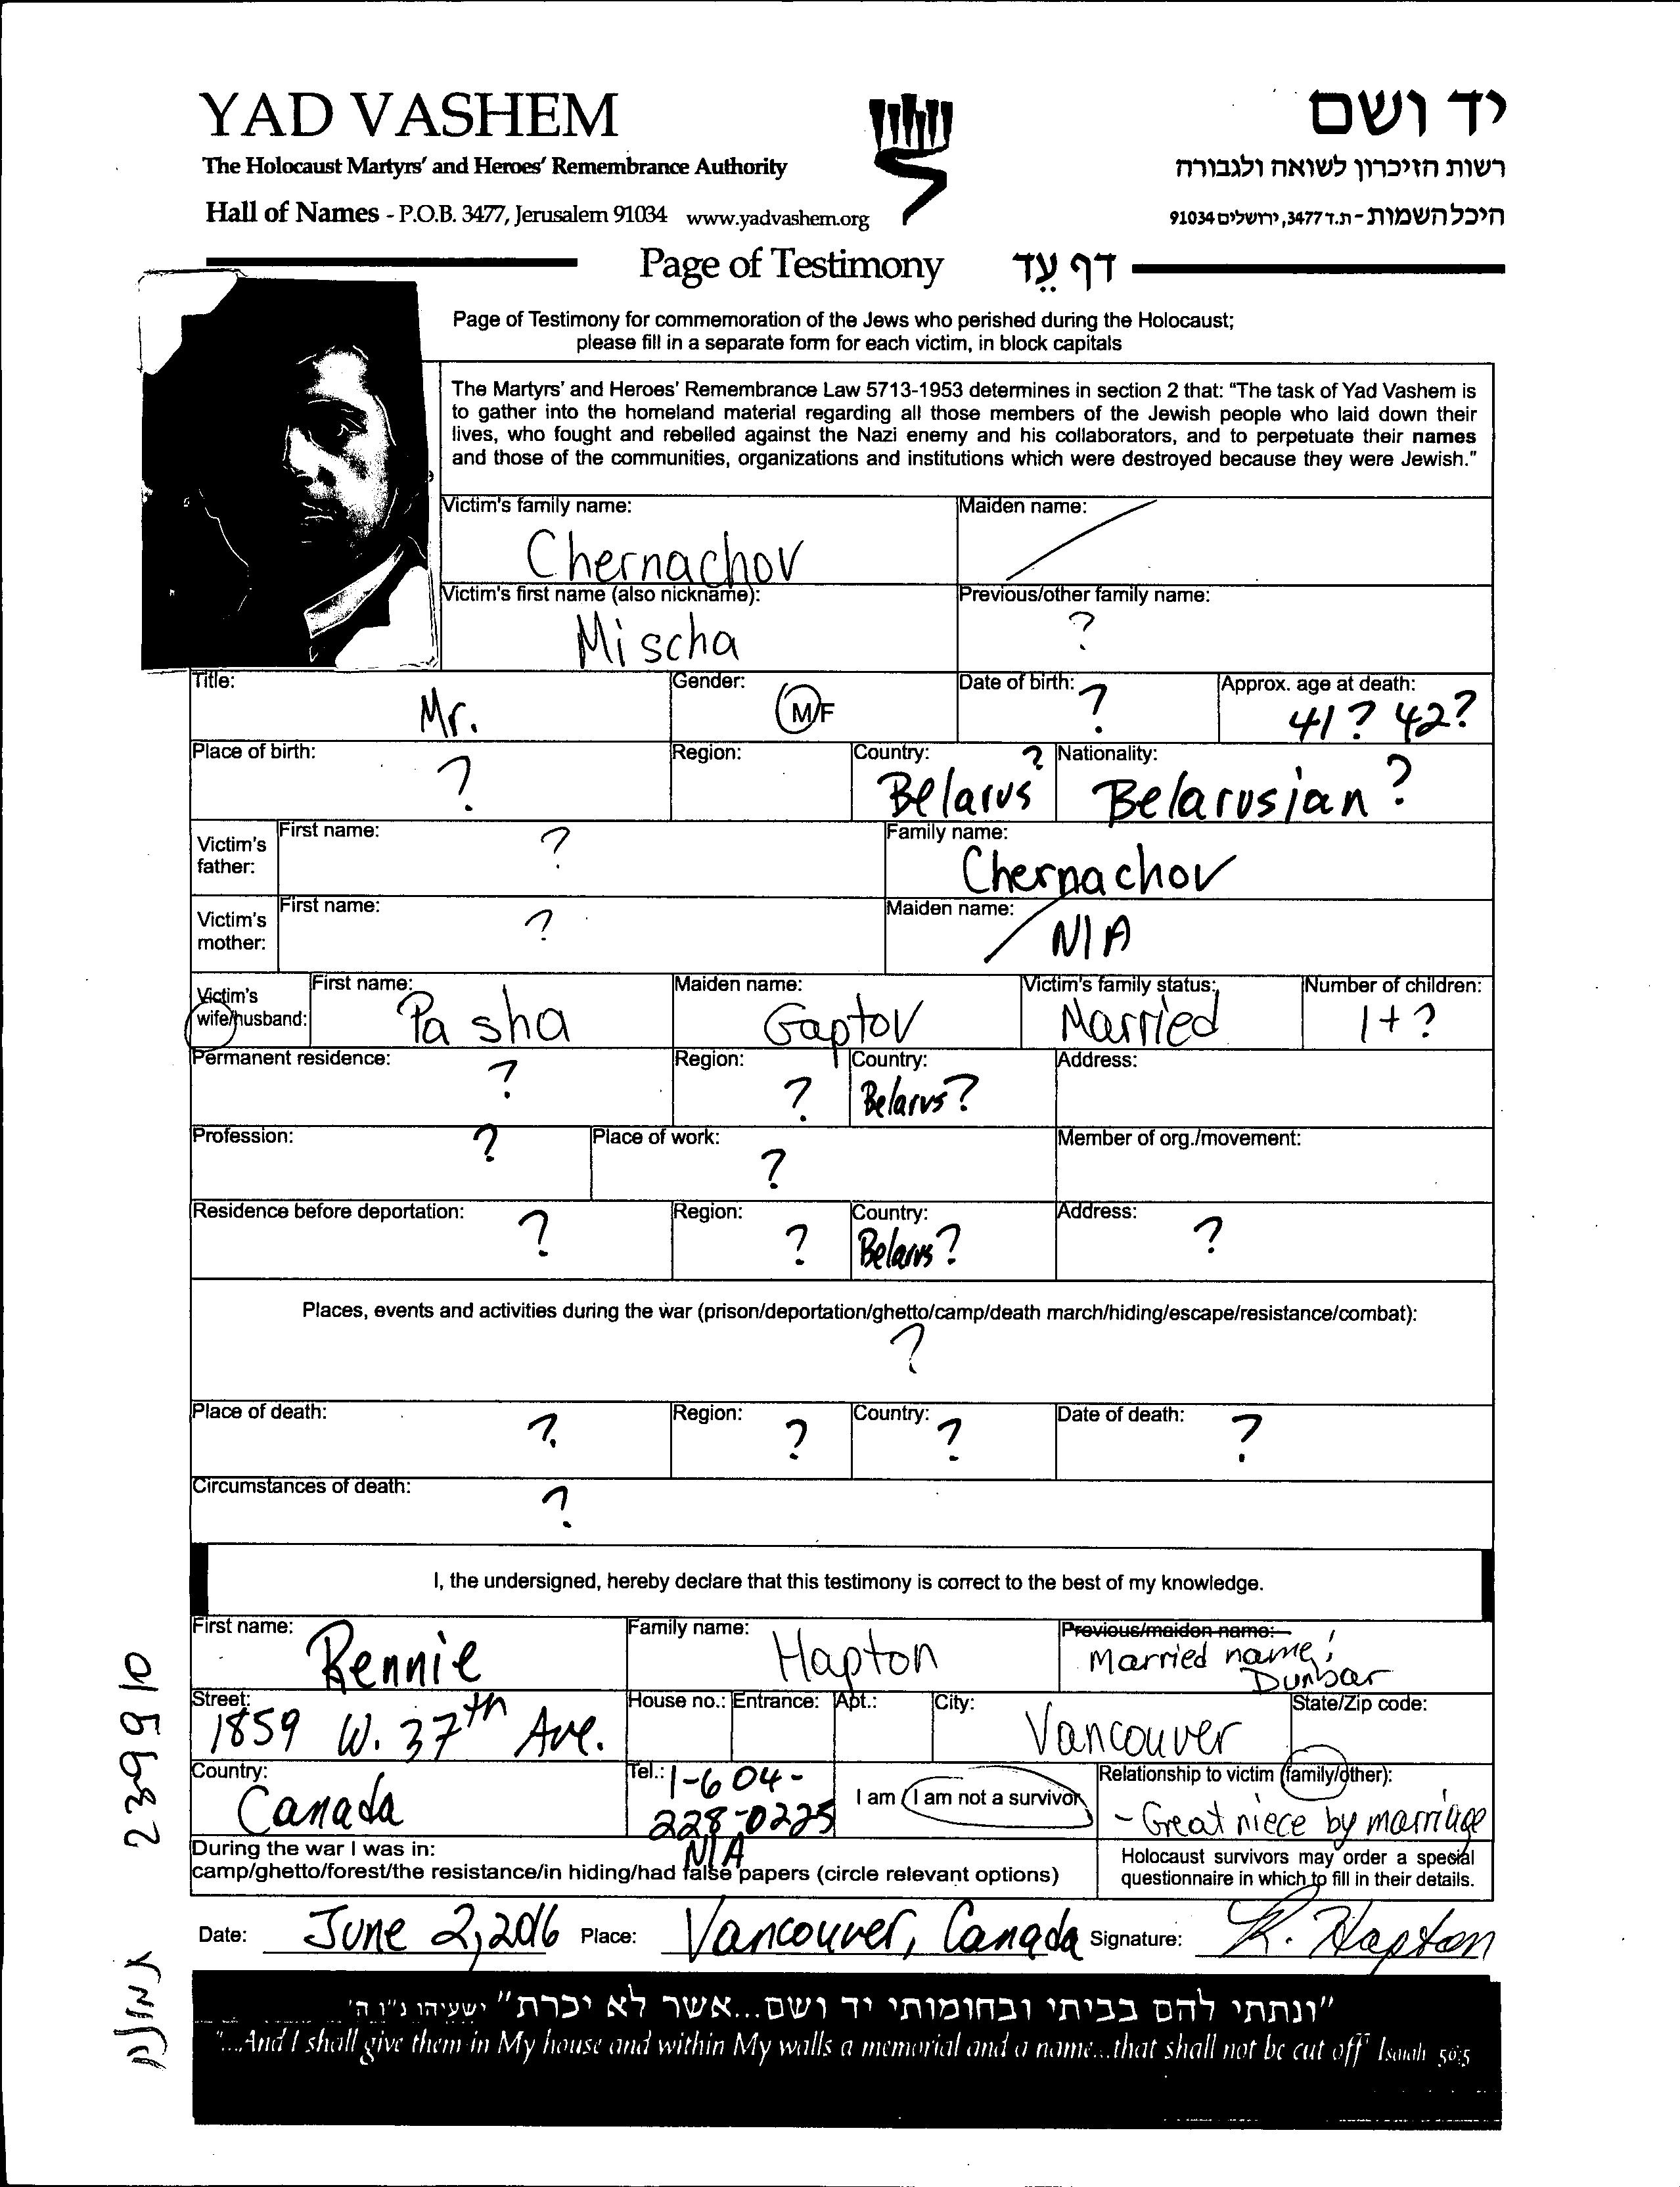 YAD VASHEM
יד ושם
The Holocaust Martyrs' and Heroes' Remembrance Authority
רשות הזיכרון לשואה ולגבורה
Hall of Names - P.O.B. 3477, Jerusalem 91034 www.yadvashem.org
היכל השמות - ת.ד 3477, ירושלים 91034
Page of Testimony דף עֵד
Page of Testimony for commemoration of the Jews who perished during the Holocaust;
please fill in a separate form for each victim, in block capitals
The Martyrs' and Heroes' Remembrance Law 5713-1953 determines in section 2 that: "The task of Yad Vashem is
to gather into the homeland material regarding all those members of the Jewish people who laid down their
lives, who fought and rebelled against the Nazi enemy and his collaborators, and to perpetuate their names
and those of the communities, organizations and institutions which were destroyed because they were Jewish."
Victim's family name: Maiden name:
Chernachov
Victim's first name (also nickname): Previous/other family name:
Mischa ?
Title: Gender: Date of birth: Approx. age at death:
Mr. M/F ? 41? 42?
Place of birth: Region: Country: Nationality:
? Belarus ? Belarusian ?
Victim's father: First name: ? Family name:
Chernachov
Victim's mother: First name: ? Maiden name:
N/A
Victim's wife/husband: First name: Maiden name: Victim's family status: Number of children:
Pasha Gaptov Married 1+?
Permanent residence: Region: Country: Address:
? ? Belarus?
Profession: Place of work: Member of org./movement:
? ?
Residence before deportation: Region: Country: Address:
? ? Belarus? ?
Places, events and activities during the war (prison/deportation/ghetto/camp/death march/hiding/escape/resistance/combat):
?
Place of death: Region: Country: Date of death:
? ? ? ?
Circumstances of death:
?
I, the undersigned, hereby declare that this testimony is correct to the best of my knowledge.
First name: Family name: Previous/maiden name:
Rennie Hapton Married name:
Dunbar
Street: House no.: Entrance: Apt.: City: State/Zip code:
1859 W. 37th Ave. Vancouver
Country: Tel.: 1-604- I am / I am not a survivor Relationship to victim (family/other):
Canada 228-0225 - Great niece by marriage
During the war I was in: N/A
camp/ghetto/forest/the resistance/in hiding/had false papers (circle relevant options)
Holocaust survivors may order a special
questionnaire in which to fill in their details.
Date: June 2, 2016 Place: Vancouver, Canada Signature: R. Hapton
"ונתתי להם בביתי ובחומותי יד ושם...אשר לא יכרת" ישעיהו נ"ו ה'
"...And I shall give them in My house and within My walls a memorial and a name...that shall not be cut off" Isaiah 56:5